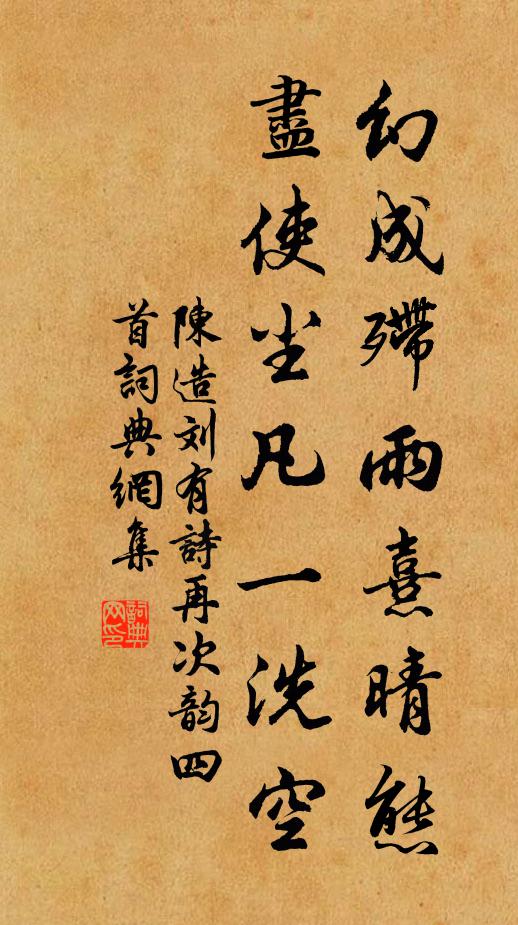 幻成殢雨熹晴態
盡使尘凡一洗空
陳造刘有詩再次韵四
首詞典網集
詞典
网印